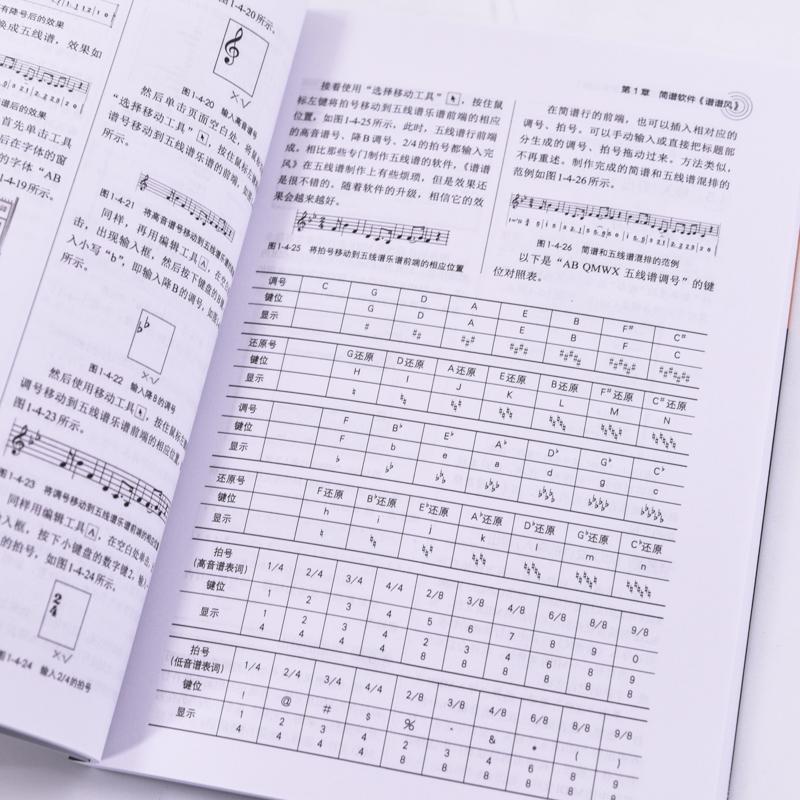 有降号后的效果
换成五线谱，效果如
谱后的效果
首先单击工具
后在字体的窗
的字体“AB
1-4-19所示。
图1-4-20所示。
图1-4-20 输入高音谱号
然后单击页面空白处，
“选择移动工具”，按住鼠标左
谱号移动到五线谱乐谱的前端，如
所示。
图1-4-21 将高音谱号移动到五线谱乐谱的
同样，再用编辑工具A，在空白
击，出现输入框，然后按下键盘的
入小写“b”，即输入降B的调号，如
所示。
图1-4-22 输入降B的调号
然后使用移动工具，按住鼠标左
调号移动到五线谱乐谱前端的相应位置，
图1-4-23所示。
图1-4-23 将调号移动到五线谱乐谱前端的相应位置
同样用编辑工具A，在空白处单击，
输入框，按下小键盘的数字键2，输入
的拍号，如图1-4-24所示。
2
4
图1-4-24 输入2/4的拍号
第1章 简谱软件《谱谱风》
接着使用“选择移动工具”，按住鼠
标左键将拍号移动到五线谱乐谱前端的相应
位置，如图1-4-25所示，此时，五线谱行前端
的高音谱号、降B调号、2/4的拍号都输入完
成。相比那些专门制作五线谱的软件，《谱谱
风》在五线谱制作上有些烦琐，但是效果还
是很不错的。随着软件的升级，相信它的效
果会越来越好。
图1-4-25 将拍号移动到五线谱乐谱前端的相应位置
在简谱行的前端，也可以插入相对应的
调号、拍号。可以手动输入或直接把标题部
分生成的调号、拍号拖动过来。方法类似，
不再重述。制作完成的简谱和五线谱混排的
范例如图1-4-26所示。
图1-4-26 简谱和五线谱混排的范例
以下是“AB QMWX 五线谱调号”的键
位对照表。
调号 C G D A E B F# C#
键位 G D A E B F C
显示 # ## ### #### ##### ###### #######
还原号 G还原 D还原 A还原 E还原 B还原 F#还原 C#还原
键位 H I J K L M N
显示
调号 F B♭ E♭ A♭ D♭ G♭ C♭
键位 F b e a d g c
显示
还原号 F还原 B♭还原 E♭还原 A♭还原 D♭还原 G♭还原 C♭还原
键位 h i j k l m n
显示
拍号
(高音谱表词) 1/4 2/4 3/4 4/4 2/8 3/8 4/8 6/8 8/8 9/8
键位 1 2 3 4 5 6 7 8 9 0
显示 1 2 3 4 2 3 4 6 8 9
4 4 4 4 8 8 8 8 8 8
拍号
(低音谱表词) 1/4 2/4 3/4 4/4 2/8 3/8 4/8 6/8 8/8 9/8
键位 ! @ # $ % & * ( )
显示 1 2 3 4 2 3 4 6 8 9
4 4 4 4 8 8 8 8 8 8